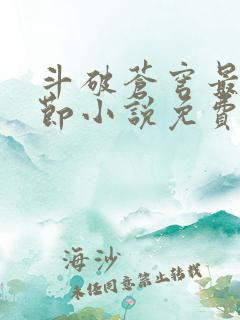 斗破苍穹最
节小说免费
海沙
未经同意禁止转载